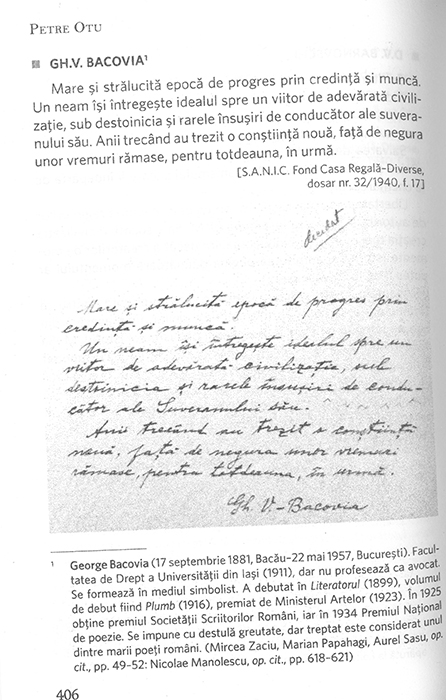 PETRE OTU
GH.V. BACOVIA¹
Mare și strălucită epocă de progres prin credință și muncă.
Un neam își întregește idealul spre un viitor de adevărată civili-
zație, sub destoinicia și rarele însușiri de conducător ale suvera-
nului său. Anii trecând au trezit o conștiință nouă, față de negura
unor vremuri rămase, pentru totdeauna, în urmă.
[S.A.N.I.C. Fond Casa Regală–Diverse,
dosar nr. 32/1940, f. 17]
decedat
Mare și strălucită epocă de progres prin
credință și muncă.
Un neam își întregește idealul spre un
viitor de adevărată civilizație, sub
destoinicia și rarele însușiri de condu-
cător ale Suveranului său.
Anii trecând au trezit o conștiință
nouă, față de negura unor vremuri
rămase, pentru totdeauna, în urmă.
Gh. V. Bacovia
¹ George Bacovia (17 septembrie 1881, Bacău–22 mai 1957, București). Facul-
tatea de Drept a Universității din Iași (1911), dar nu profesează ca avocat.
Se formează în mediul simbolist. A debutat în Literatorul (1899), volumul
de debut fiind Plumb (1916), premiat de Ministerul Artelor (1923). În 1925
obține premiul Societății Scriitorilor Români, iar în 1934 Premiul Național
de poezie. Se impune cu destulă greutate, dar treptat este considerat unul
dintre marii poeți români. (Mircea Zaciu, Marian Papahagi, Aurel Sasu, op.
cit., pp. 49–52: Nicolae Manolescu, op. cit., pp. 618–621)
406